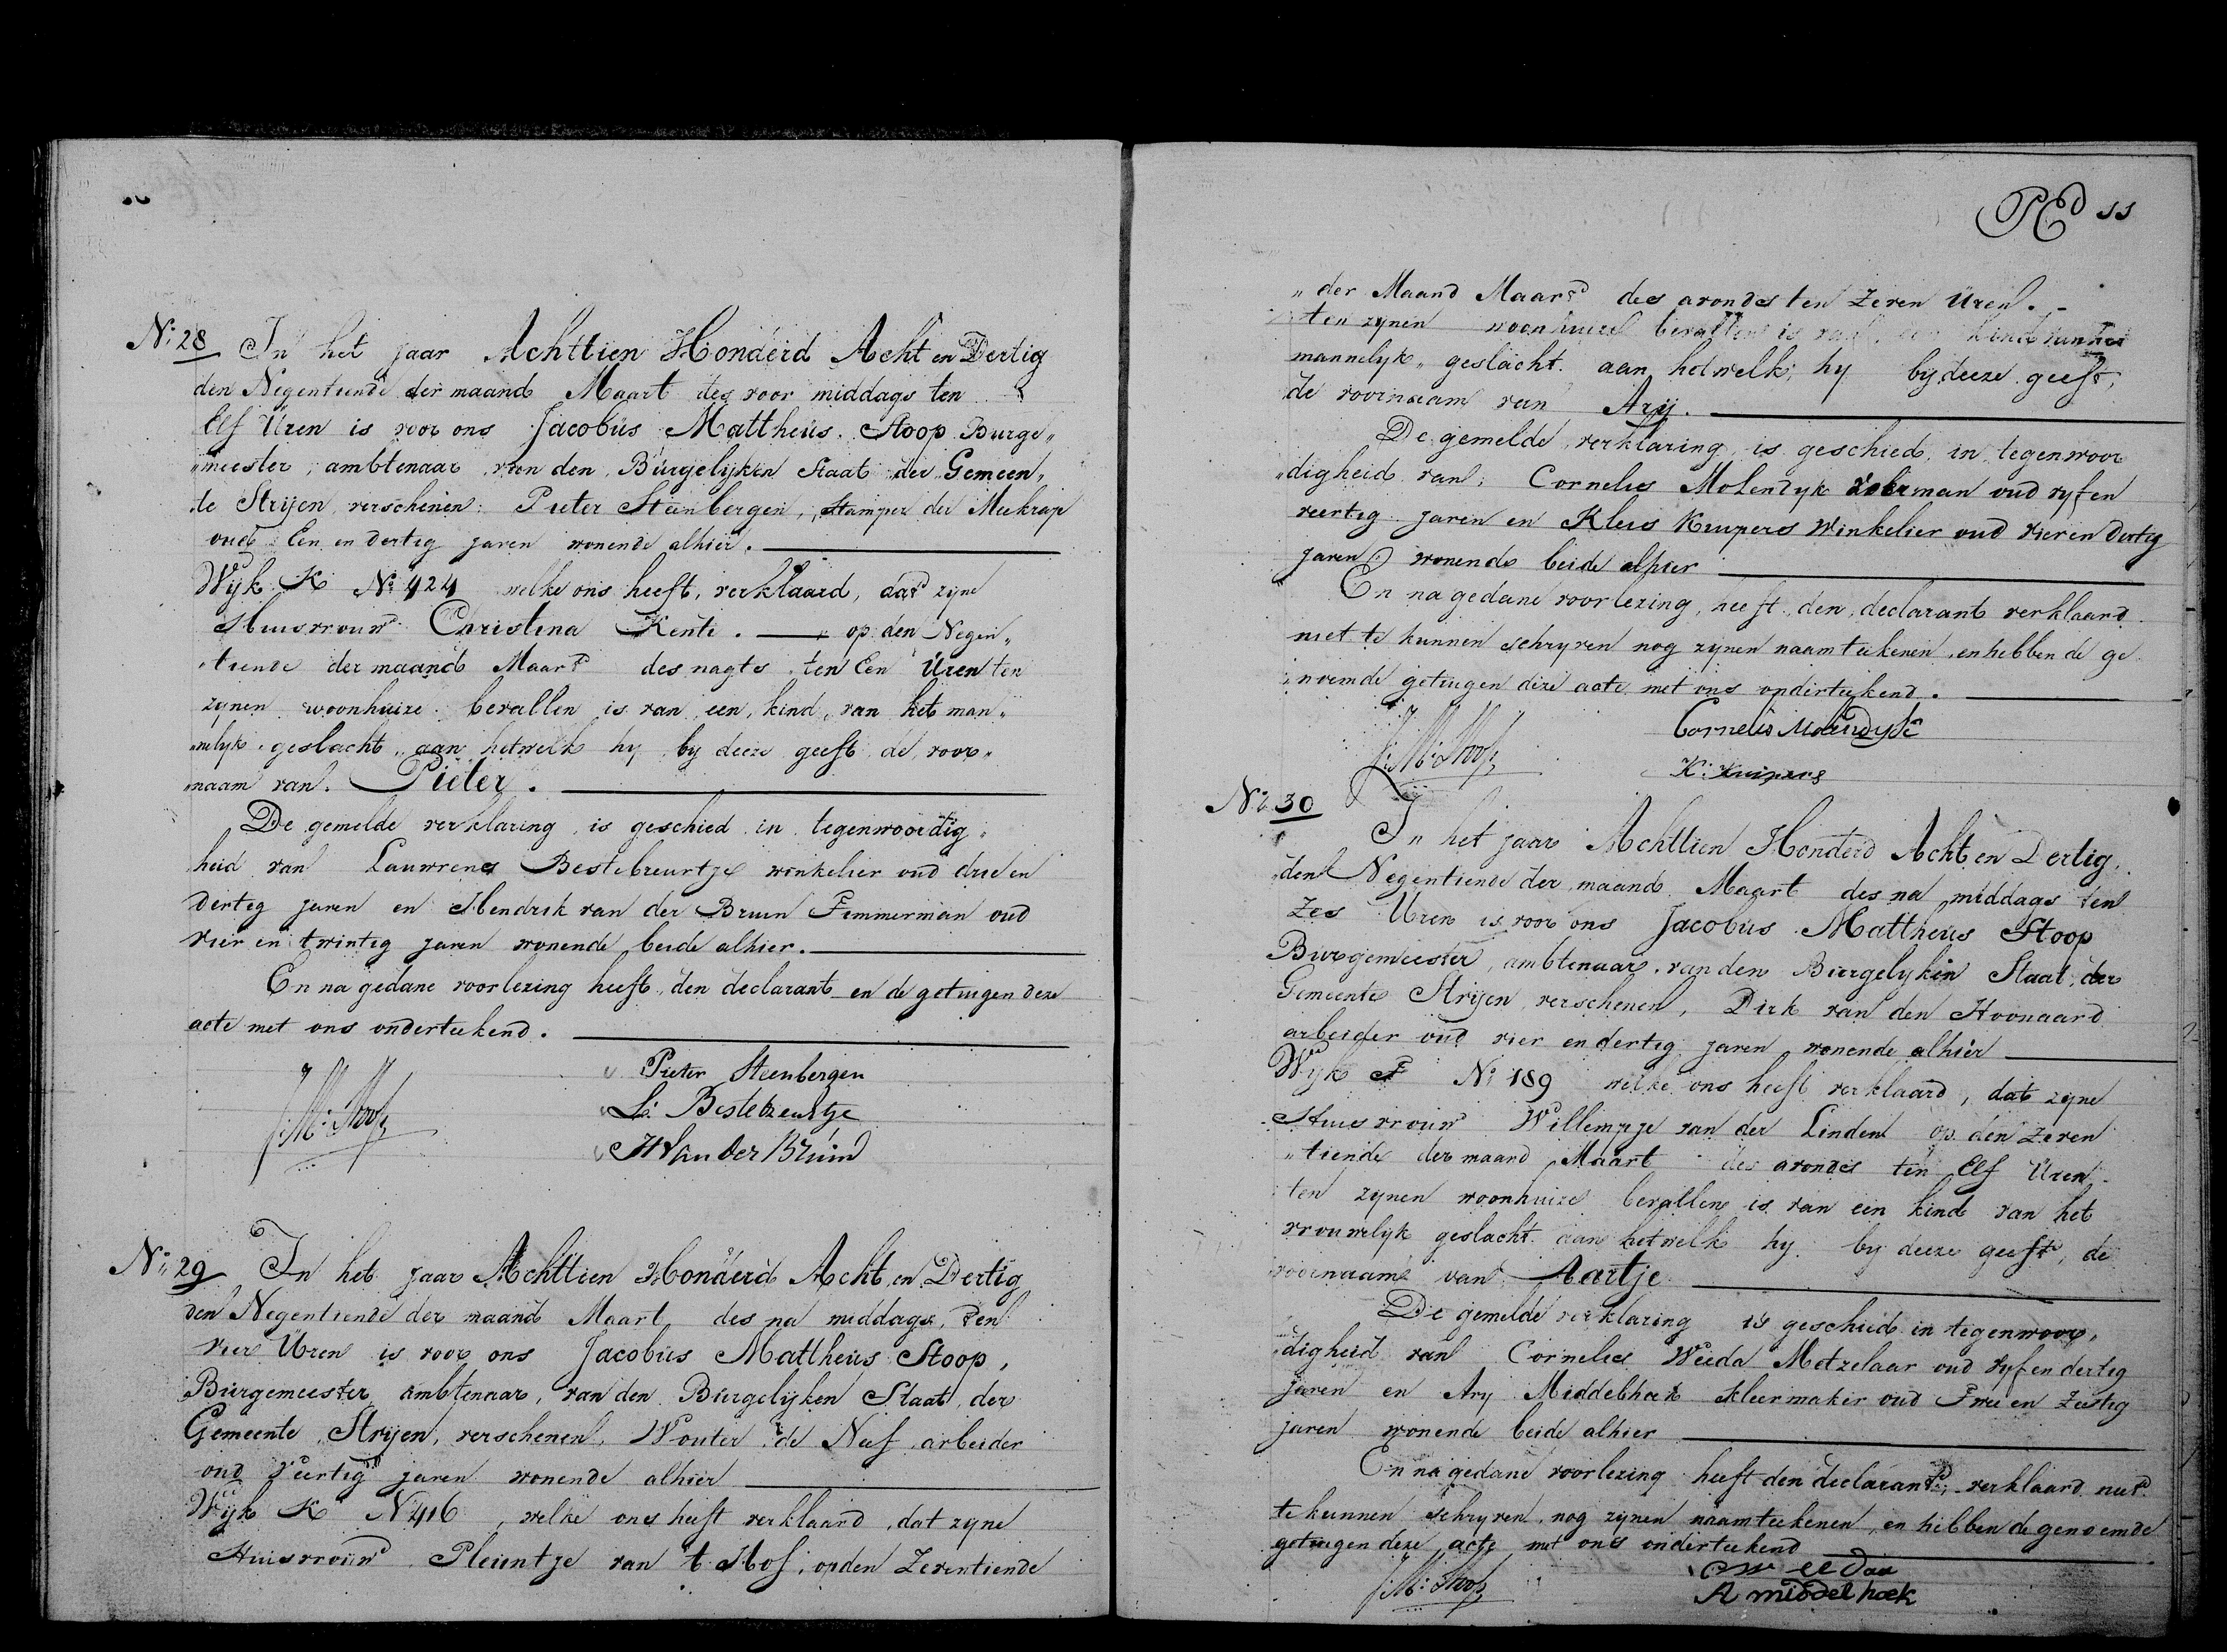 N: 28 In het jaar Achttien Honderd Acht en Dertig
den Negentiende der maand Maart des voor middags ten
Elf Uren is voor ons Jacobus Mattheus Stoop Burge„
„meester, ambtenaar van den Burgelyken Staat der Gemeen„
te Strijen, verschenen: Pieter Steenbergen, Stamper der Meekrap
oud Een en dertig jaren wonende alhier.
Wyk K N: 424 welke ons heeft, verklaard, dat zyne
Huisvrouw Christina Kente. op den Negen„
„tiende der maand Maart des nagts ten Een Uren ten
zynen woonhuize bevallen is van een, kind, van het man„
„nelyk geslacht, aan hetwelk hy by deeze geeft de voor„
„naam van. Pieter.
De gemelde verklaring is geschied in tegenwoordig„
heid van Lauwrens Bestebreurtje winkelier oud drie en
dertig jaren en Hendrik van der Bruin Timmerman oud
vier en twintig jaren wonende beide alhier.
En na gedane voorlezing heeft den declarant en de getuigen deze
acte met ons onderteekend.
Pieter Steenbergen
J: M: Stoop L: Bestebreurtje
H Van der Bruin
N: 29 In het jaar Achttien Honderd Acht en Dertig
den Negentiende der maand Maart, des na middags, ten
vier Uren is voor ons Jacobus Mattheus Stoop,
Burgemeester, ambtenaar, van den Burgelyken Staat, der
Gemeente Strijen, verschenen, Wouter de Neef, arbeider
oud veertig jaren wonende alhier
Wyk K N 416, welke ons heeft verklaard, dat zyne
Huisvrouw Pleuntje van t Hof, op den Zeventiende
11
„der Maand Maart des avonds ten Zeven Uren.
ten zynen woonhuize bevallen is van een kind van het
mannelyk„ geslacht. aan hetwelk; hy by deeze geeft,
de voornaam van Ary.
De gemelde verklaring is geschied, in tegenwoor
„digheid van, Cornelis Molendyk voerman oud vyf en
veertig jaren en Kleis Kuypers Winkelier oud vier en dertig
jaren wonende beide alhier
En na gedane voorlezing, heeft den declarant verklaard
niet te kunnen schryven nog zynen naam teekenen, en hebben de ge
„noemde getuigen deze acte met ons onderteekend.
J: M: Stoop Cornelis Molendyk
K: Kuipers
N: 30 In het jaar Achttien Honderd Acht en Dertig,
„den Negentiende der maand Maart des na middags ten
Zes Uren is voor ons Jacobus Mattheus Stoop
Burgemeester, ambtenaar van den Burgelyken Staat, der
Gemeente Strijen, verschenen, Dirk van den Hoonaard
arbeider oud vier en dertig jaren wonende alhier
Wyk F N: 189 welke ons heeft verklaard, dat zyne
Huisvrouw Willempje van der Linden op den Zeven
„tiende der maand Maart des avonds ten Elf Uren
ten zynen woonhuize bevallen is van een kind van het
vrouwelyk geslacht. aan hetwelk hy by deeze geeft, de
voornaam van Aartje
De gemelde verklaring is geschied in tegenwoor„
„digheid van Cornelis Weeda Metzelaar oud vyf en dertig
jaren en Ary Middelhoek kleermaker oud Twee en Zestig
jaren wonende beide alhier
En na gedane voorlezing heeft den declarant, verklaard niet
te kunnen schryven, nog zynen naam teekenen, en hebben de genoemde
getuigen deze acte met ons onderteekend
J: M: Stoop C Weedaa
A middelhoek